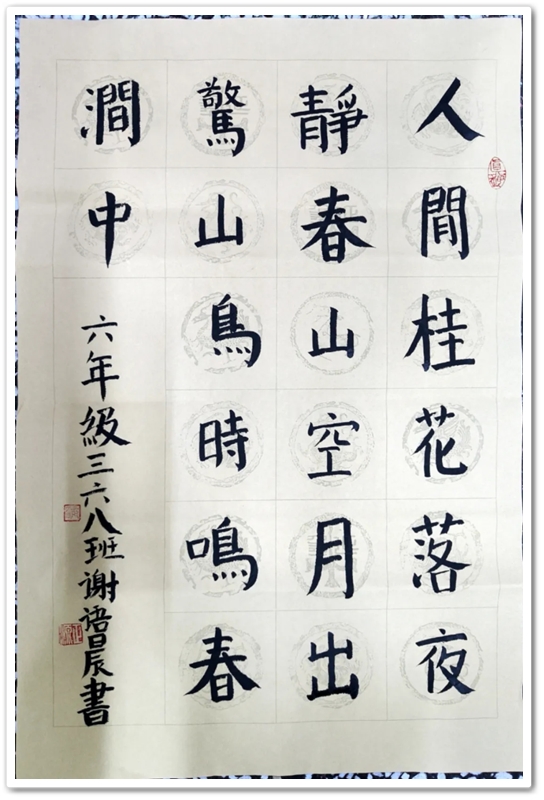 人閒桂花落夜
靜春山空月出
驚山鳥時鳴春
澗中
六年級三六八班谢语晨書